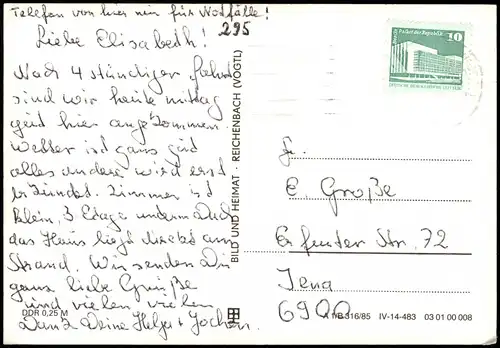 Telefon von hier nur für Notfälle!
295
Liebe Elisabeth!
Nach 4 ständiger Fahrt
sind wir heute mittag
gut hier angekommen.
Wetter ist ganz gut
alles andere wird erst
erkundet. Zimmer ist
klein, 3 Etage unterm Dach
das Haus liegt direkt am
Strand. Wir senden Dir
ganz liebe Grüße
und vielen vielen
Dank Deine Helga + Jochen
DDR 0,25 M
BILD UND HEIMAT · REICHENBACH (VOGTL)
Berlin Palast der Republik
10
DEUTSCHE DEMOKRATISCHE REPUBLIK
Fr.
E. Große
Erfurter Str. 72
Jena
6900
316/85 IV-14-483 03 01 00 008